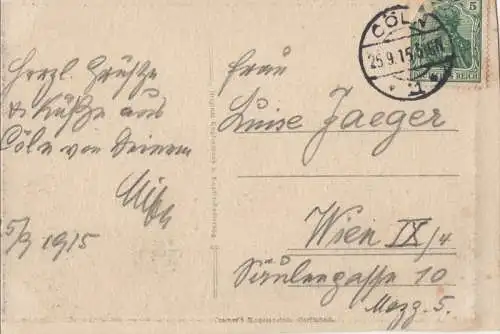 Herzl. Grüße
& Küße aus
Cöln von Deinem
25/9 1915
CÖLN
25.9.15
* 1
5
REICH
Frau
Luise Jaeger
Wien IX/4
Säulengasse 10
Mezz. 5.